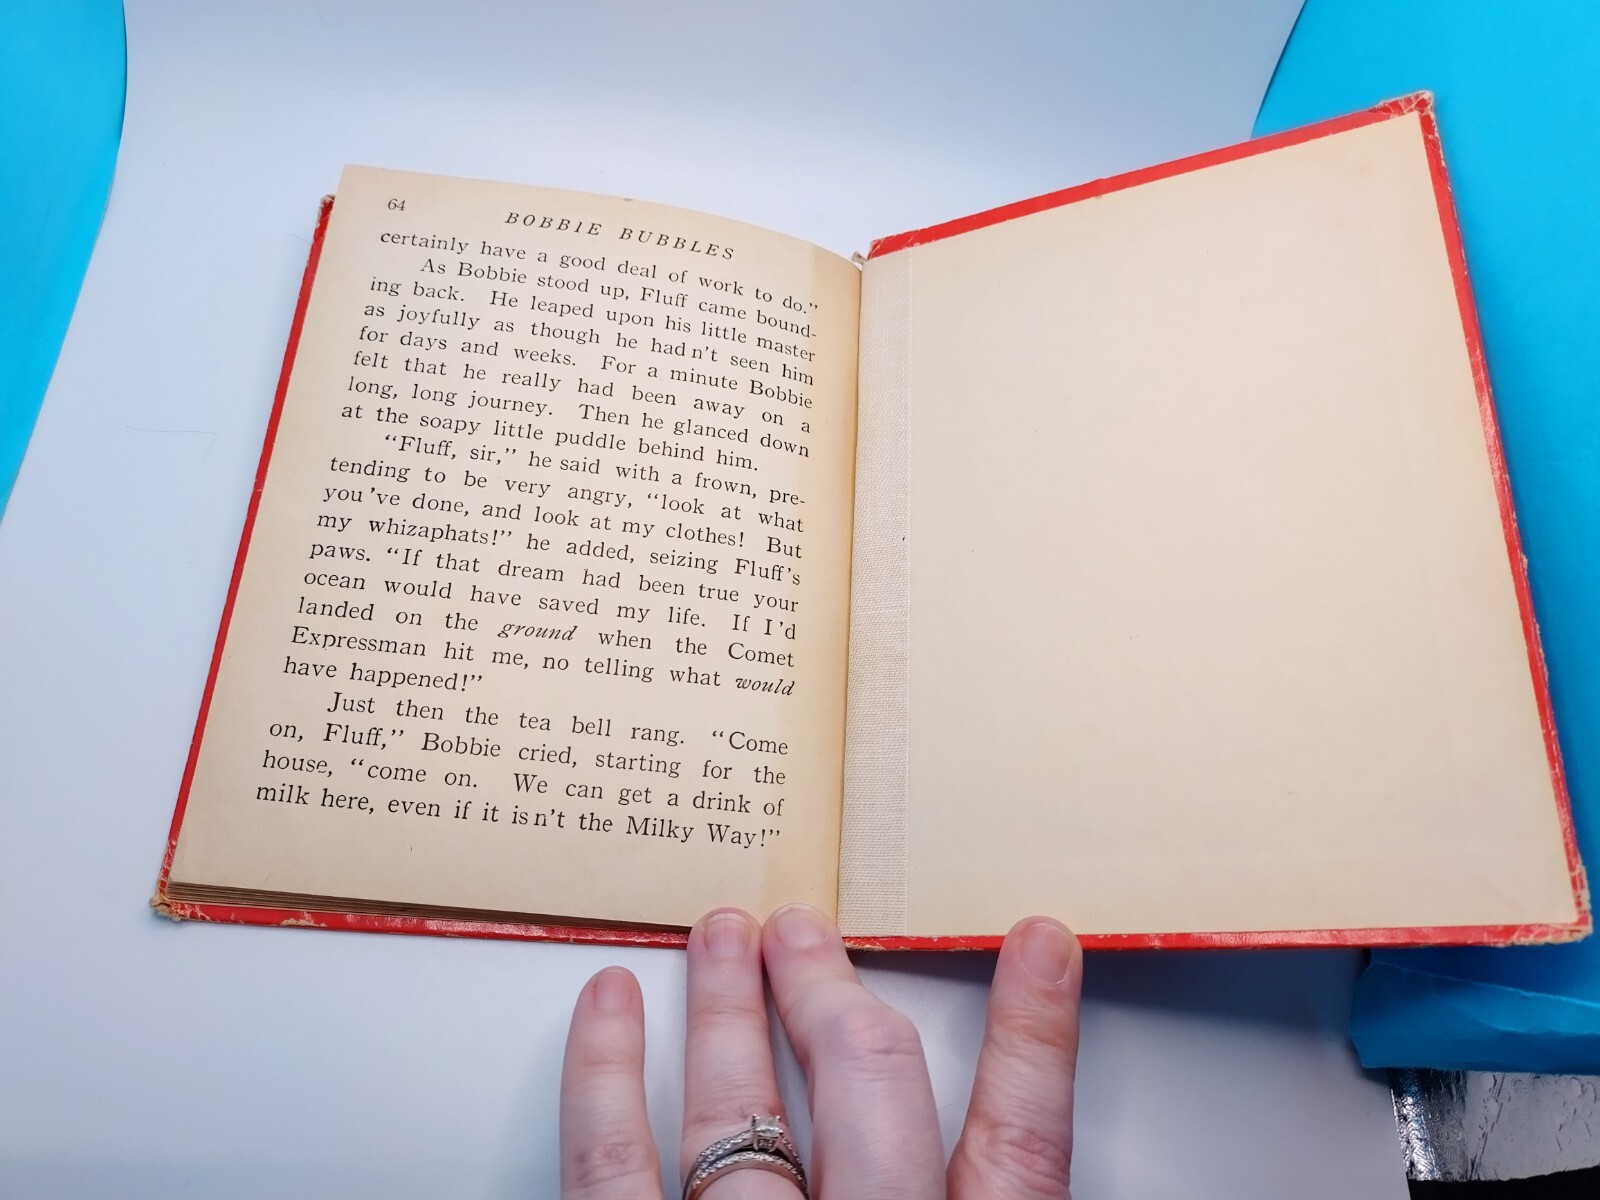 64
BOBBIE BUBBLES
certainly have a good deal of work to do.”
As Bobbie stood up, Fluff came bound-
ing back. He leaped upon his little master
as joyfully as though he hadn't seen him
for days and weeks. For a minute Bobbie
felt that he really had been away on a
long, long journey. Then he glanced down
at the soapy little puddle behind him.
“Fluff, sir,” he said with a frown, pre-
tending to be very angry, “look at what
you've done, and look at my clothes! But
my whizaphats!” he added, seizing Fluff's
paws. “If that dream had been true your
ocean would have saved my life. If I'd
landed on the ground when the Comet
Expressman hit me, no telling what would
have happened!”
Just then the tea bell rang. “Come
on, Fluff,” Bobbie cried, starting for the
house, “come on. We can get a drink of
milk here, even if it isn't the Milky Way!”